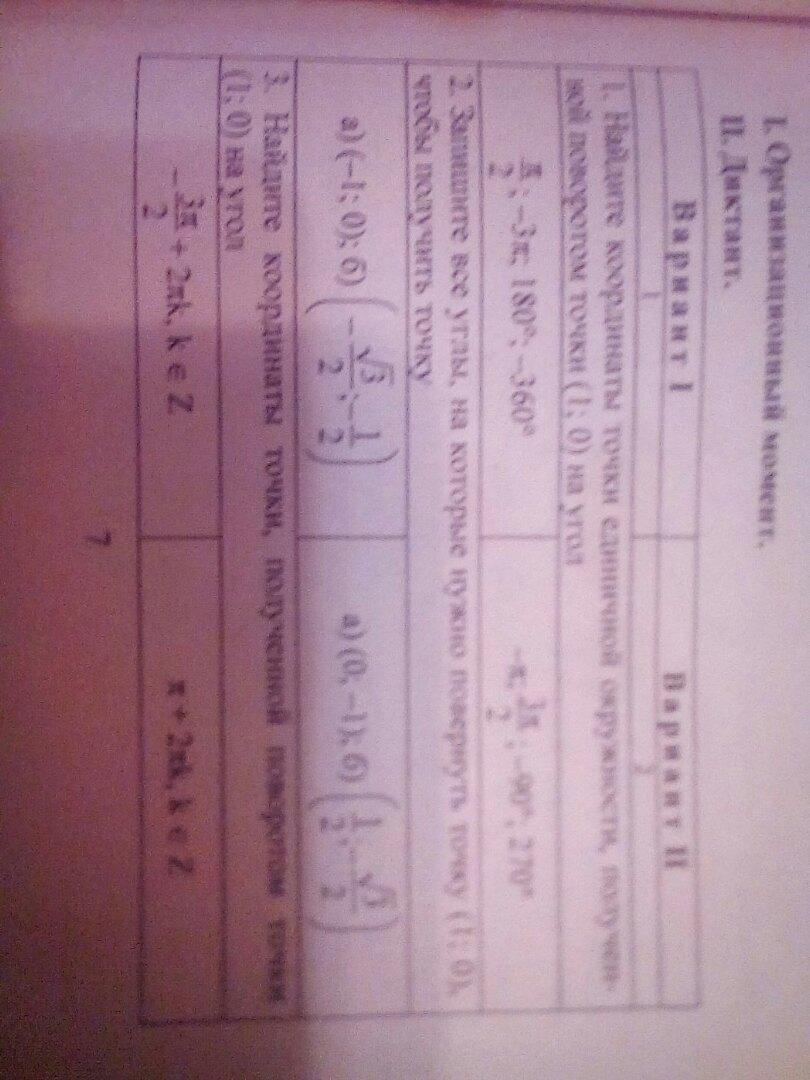 I. Организационный момент.
II. Диктант.
Вариант I
Вариант II
1
2
1. Найдите координаты точки единичной окружности, получен-
ной поворотом точки (1; 0) на угол
π/2; –3π; 180°; –360°
–π; 3π/2; –90°; 270°
2. Запишите все углы, на которые нужно повернуть точку (1; 0),
чтобы получить точку
а) (–1; 0); б) (–√3/2; –1/2)
а) (0; –1); б) (1/2; –√3/2)
3. Найдите координаты точки, полученной поворотом точки
(1; 0) на угол
–3π/2 + 2πk, k ∈ Z
π + 2πk, k ∈ Z
7